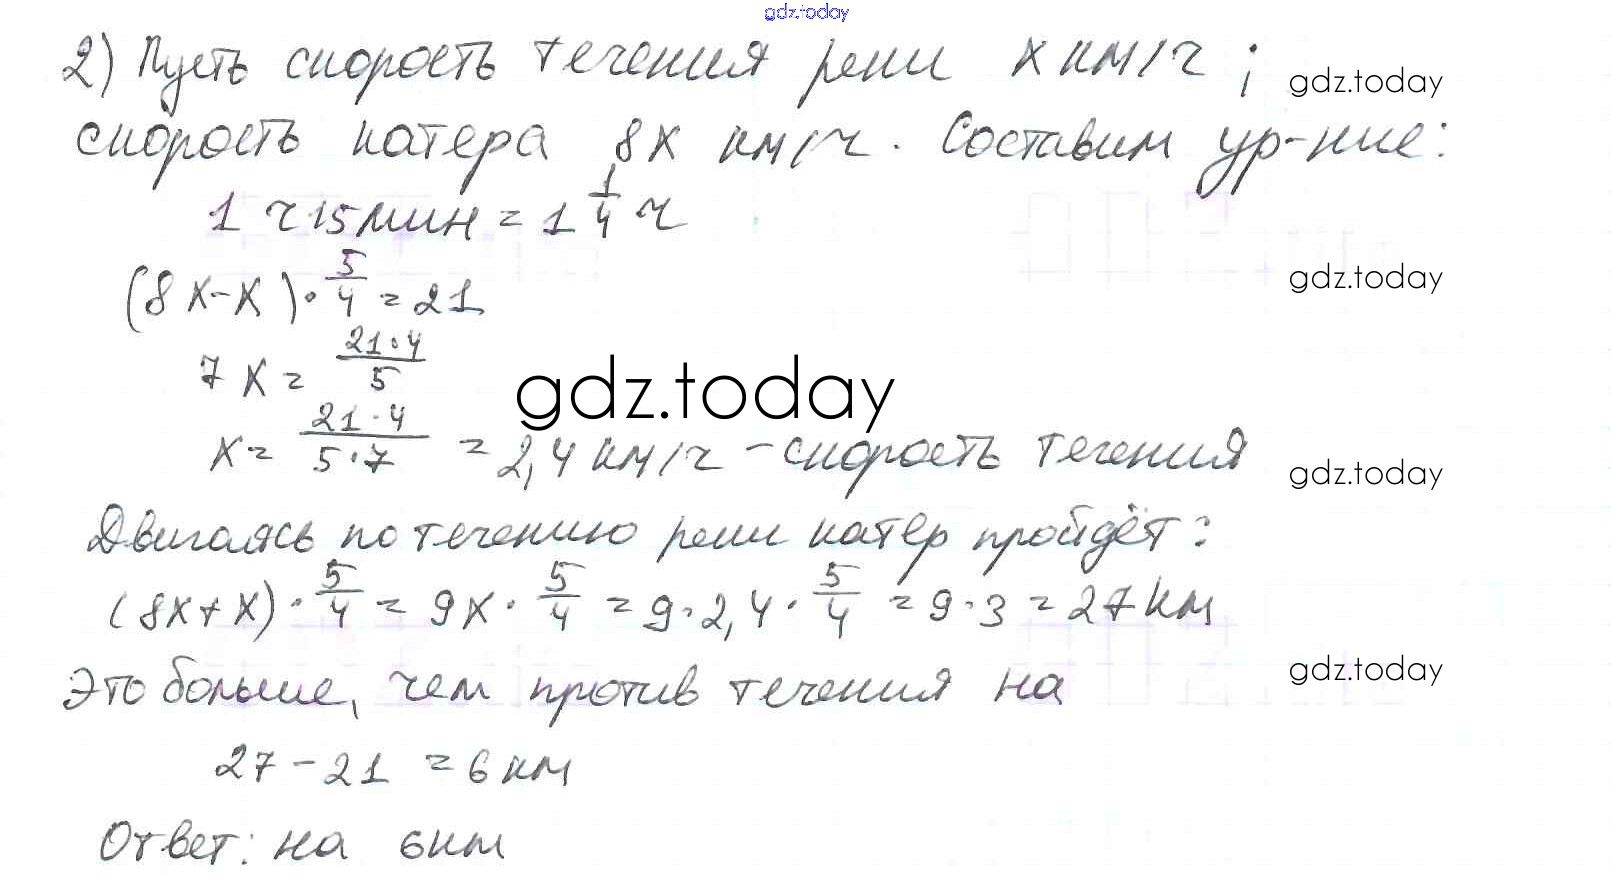 gdz.today
2) Пусть скорость течения реки x км/ч ; gdz.today
скорость катера 8x км/ч. Составим ур-ние:
1 ч 15 мин = 1 1/4 ч
(8x-x)·5/4 = 21 gdz.today
7x = 21·4/5
gdz.today
x = 21·4/5·7 = 2,4 км/ч - скорость течения gdz.today
Двигаясь по течению реки катер пройдёт:
(8x+x)·5/4 = 9x·5/4 = 9·2,4·5/4 = 9·3 = 27 км
Это больше, чем против течения на gdz.today
27 - 21 = 6 км
Ответ: на 6 км